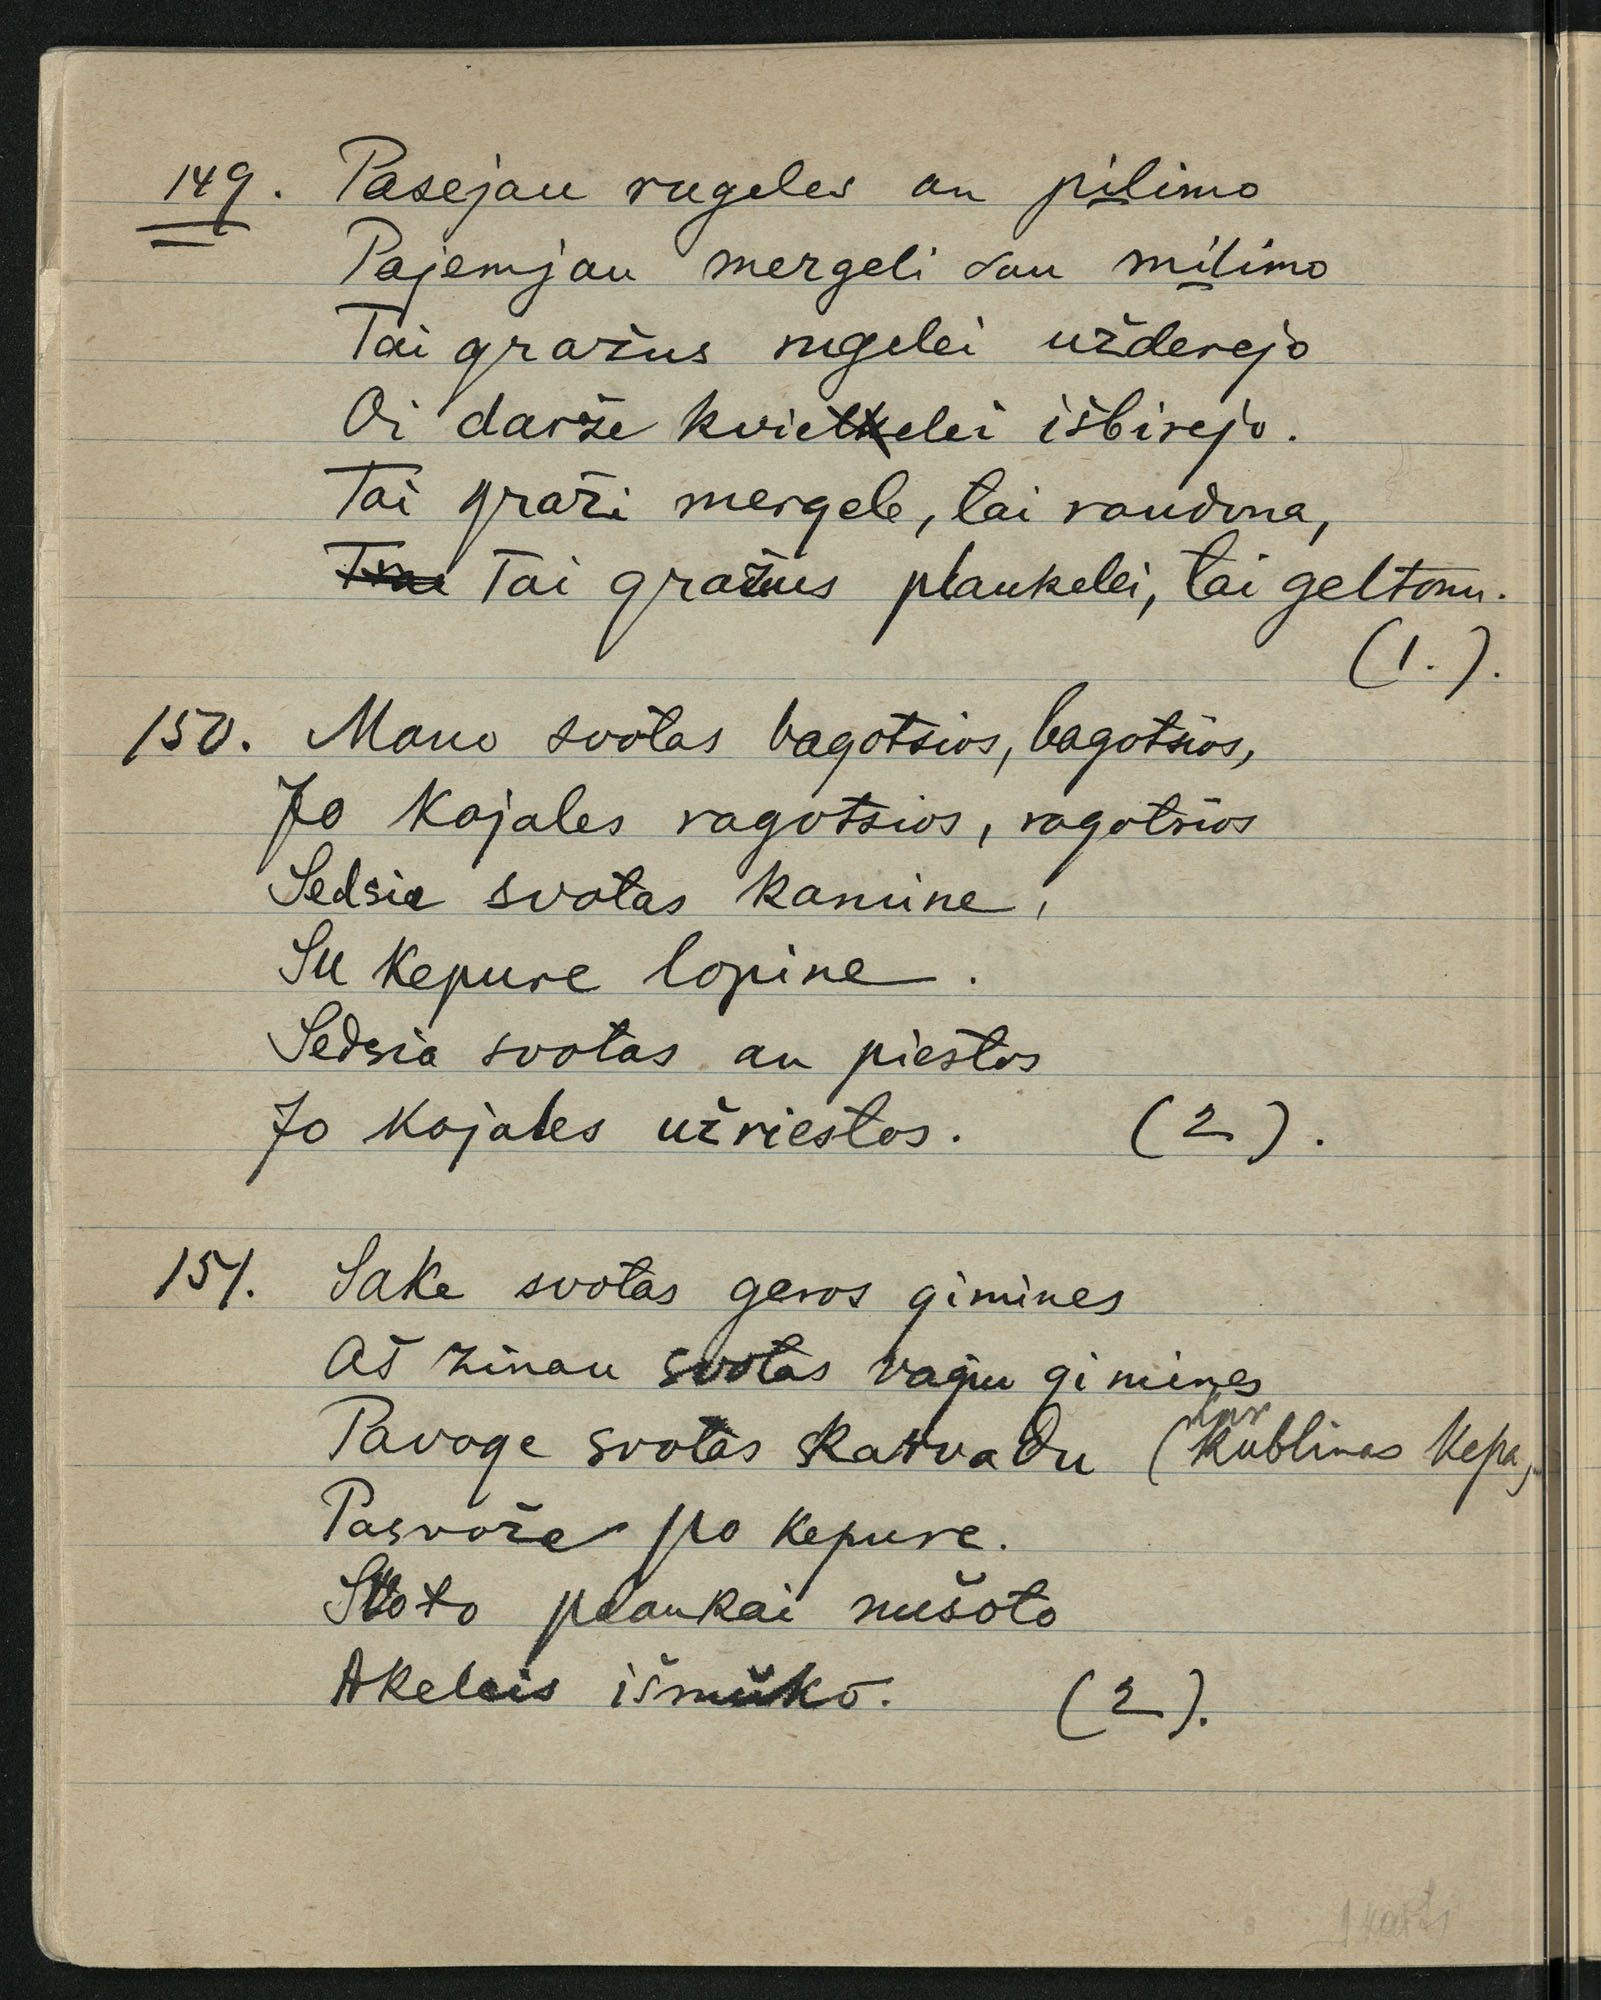 149. Pasejau rugeles an pilimo
Pajemjau mergeli sau milimo
Tai gražus rugelei užderejo
Oi darže kvietkelei išbirejo.
Tai graži mergele, tai raudona,
Tai gražus plaukelei, tai geltonu.
(1.).
150. Mano svotas bagotsios, bagotsios,
Jo Kojales ragotsios, ragotsios
Sedsia svotas kamine,
Su Kepure lopine.
Sedsia svotas an piestos
Jo Kojales užriestos. (2).
151. Sake svotas geros gimines
Aš žinau svotas vagiu gimines
Pavoge svotas skarvadu (kublinas Kepa,
Pasvože po kepure.
Svoto plaukai nušoto
Akeleis išmuko. (2).